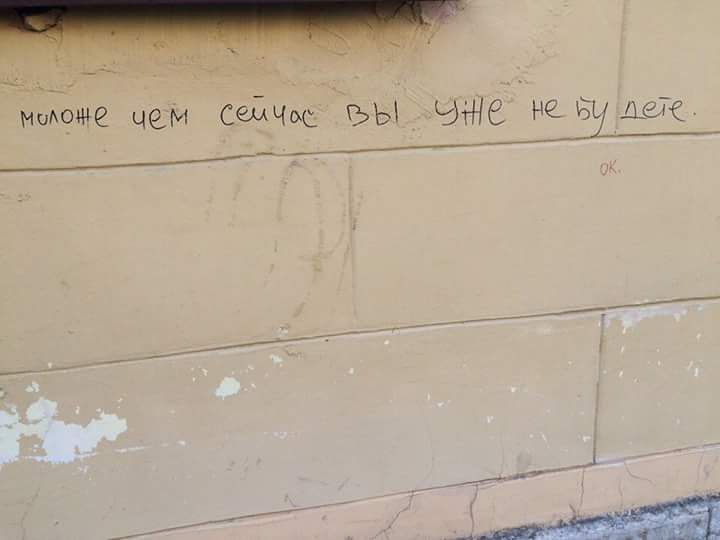 моложе чем сейчас вы уже не будете.
ок.